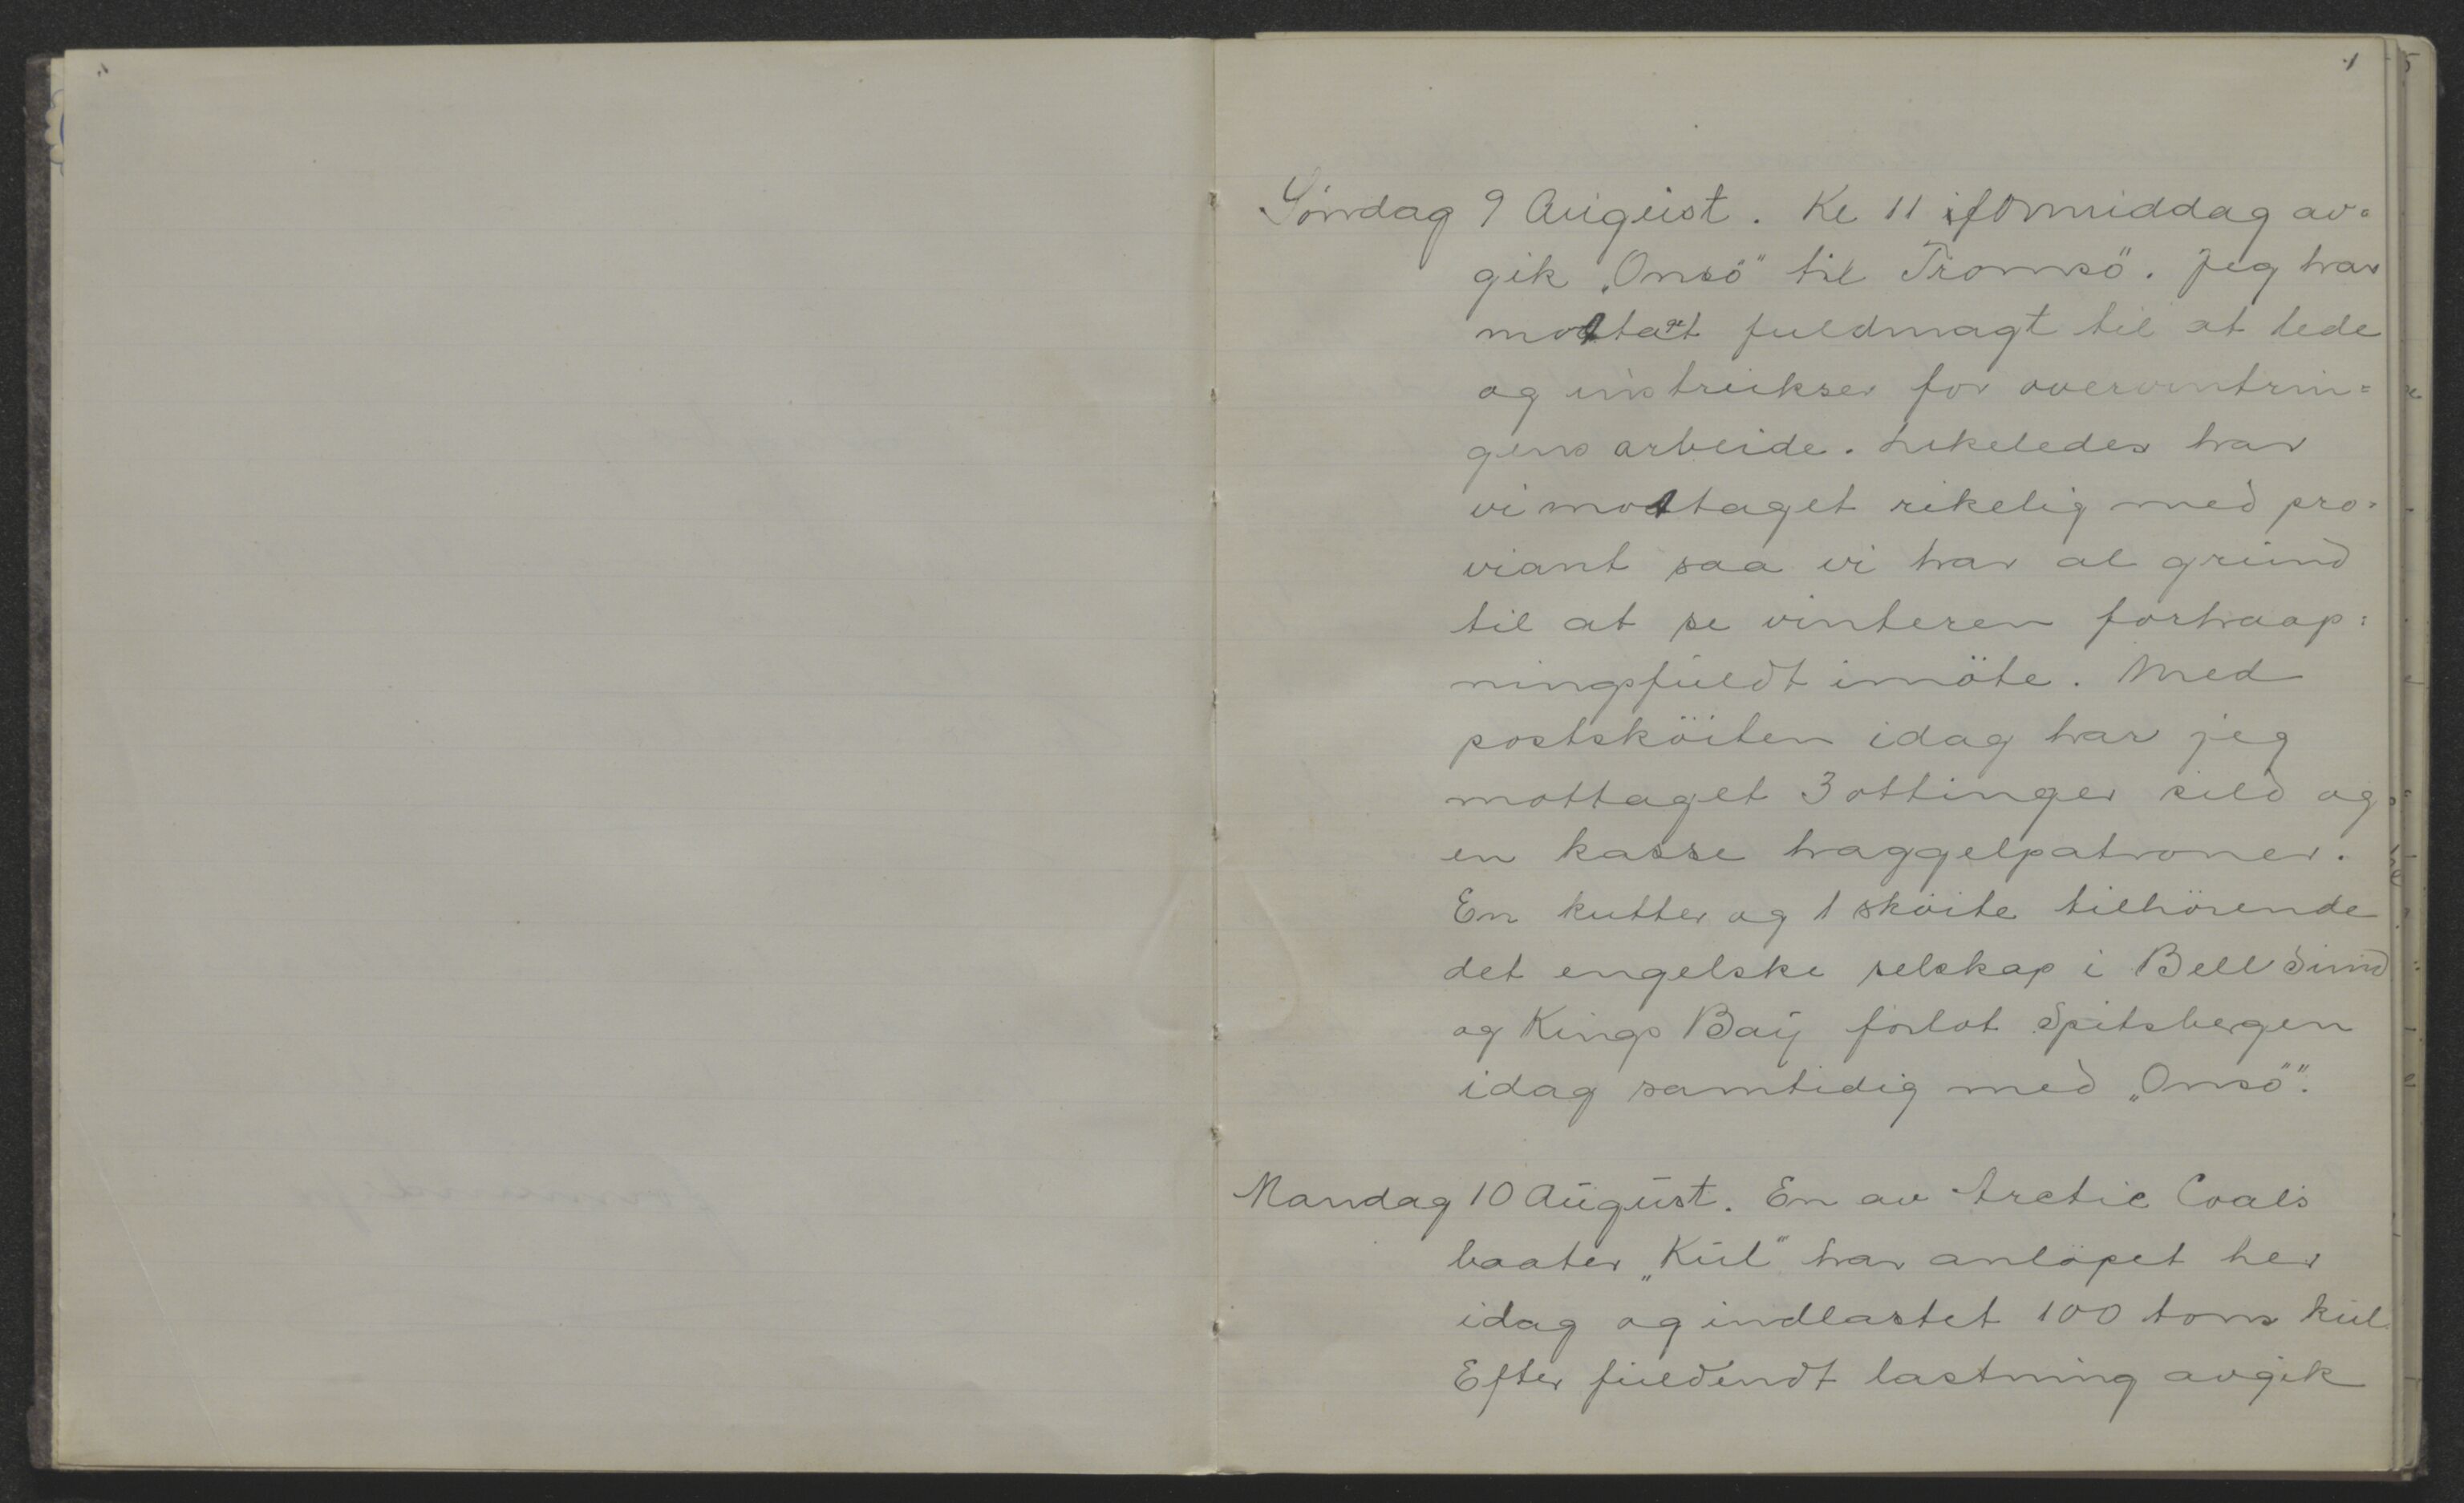 1
Söndag 9 August. Kl 11 iformiddag av=
gik „Onsö" til Tromsö. Jeg har
mottat fuldmagt til at lede
og instrukser for overvintrin=
gens arbeide. Likeledes har
vi mottaget rikelig med pro=
viant saa vi har al grund
til at se vinteren forhaap=
ningsfuldt imöte. Med
postsköiten idag har jeg
mottaget 3 ottinger sild og
en kasse haggelpatroner.
En kutter og 1 sköite tilhörende
det engelske selskap i Bell Sund
og Kings Bay forlot Spitsbergen
idag samtidig med „Onsö".
Mandag 10 August. En av Arctic Coals
baater „Kul" har anlöpet her
idag og indlastet 100 tons kul.
Efter fuldendt lastning avgik